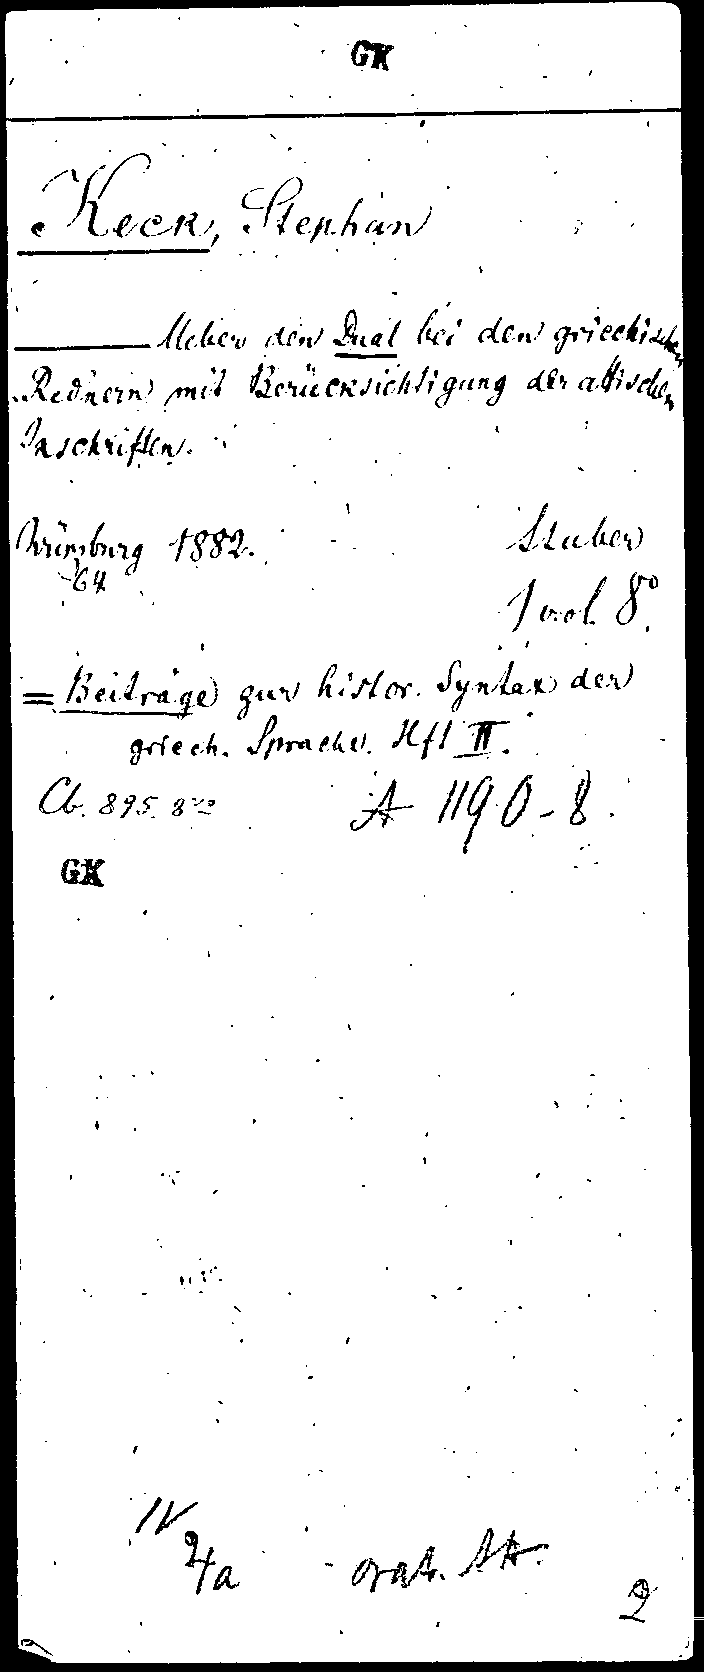 GK
Keck, Stephan
Ueber den Dual bei den griechischen
Rednern mit Berücksichtigung der attischen
Inschriften.
Würzburg 1882. Stuber
64
1 vol. 8°.
= Beiträge zur histor. Syntax der
griech. Sprache. Hft II.
Cb. 895. 8vo A 1190-8.
GK
IV
4a orat. Att.
2